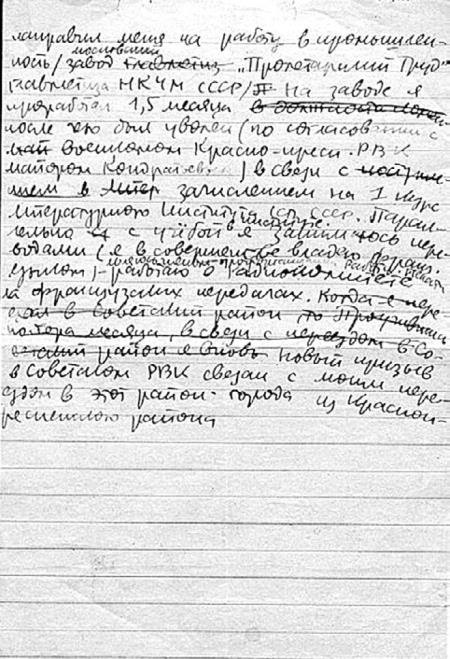 направил меня на работу в промышлен-
московский
ность / завод главметиз „Пролетарский Труд"
главметиза НКЧМ СССР / П На заводе я
проработал 1,5 месяца в должности
после чего был уволен (по согласовании с
май военкомом Красно-преси. РВК
майором Кондратьевым) в связи с
в Литер зачислением на 1 курс
Литературного Института ССП СССР. Парал-
в институте
лельно с учёбой я занимаюсь пере-
водами (я в совершенстве владею франц.
языком) работаю в Радиокомитете
на французских передачах. Когда я пере-
ехал в Советский район
полтора месяца, в связи с переездом в Со-
район я вновь Новый призыв
в Советском РВК связан с моим пере-
ездом в этот район города из Красно-
пресненского района